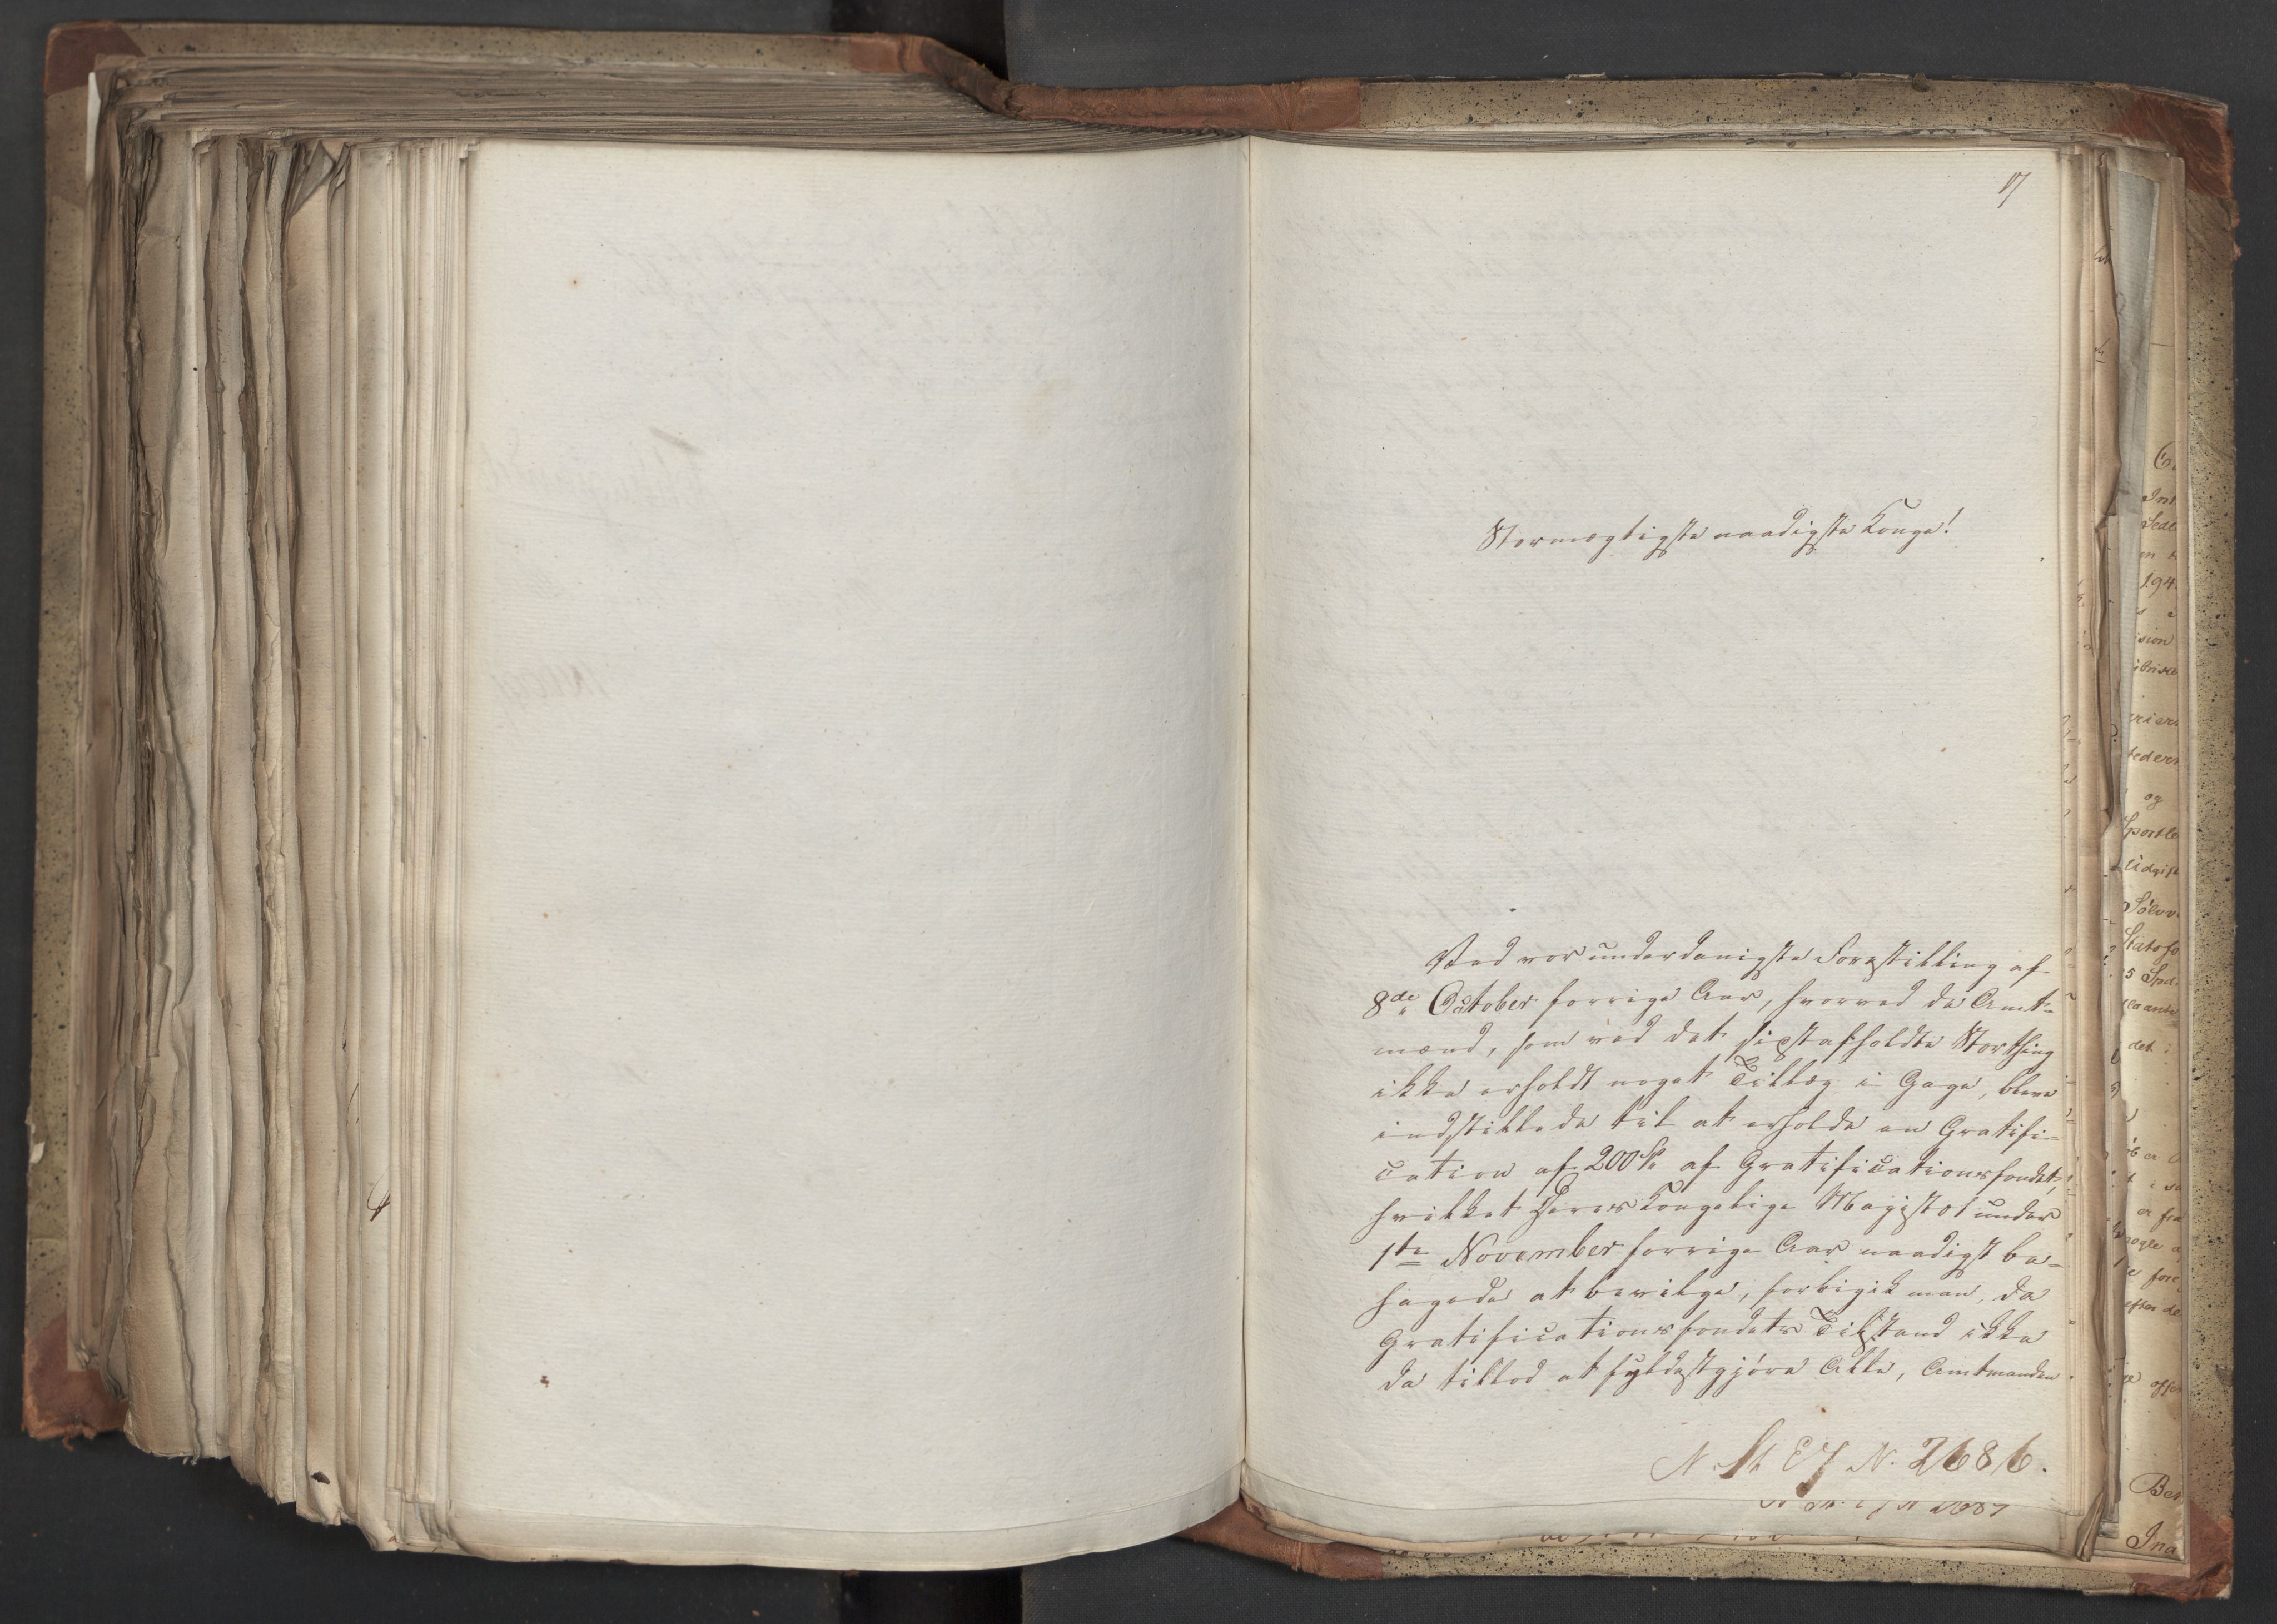 17
Stormægtigste naadigste Konge!
Ved vor underdanigste Forestilling af
8de October forrige Aar, hvorved de Amt-
mænd, som ved det sidstafholdte Storthing
ikke erholdt noget Tillæg i Gage, bleve
indstillede til at erholde en Gratifi-
cation af 200 Sp af Gratificationsfondet,
hvilket Deres Kongelige Majestæt under
1te November forrige Aar naadigst be-
hagede at bevilge, forbigik man, da
Gratificationsfondets Tilstand ikke
da tillod at fyldestgjøre Alle, Amtmanden
N. St. E J N. 2686.